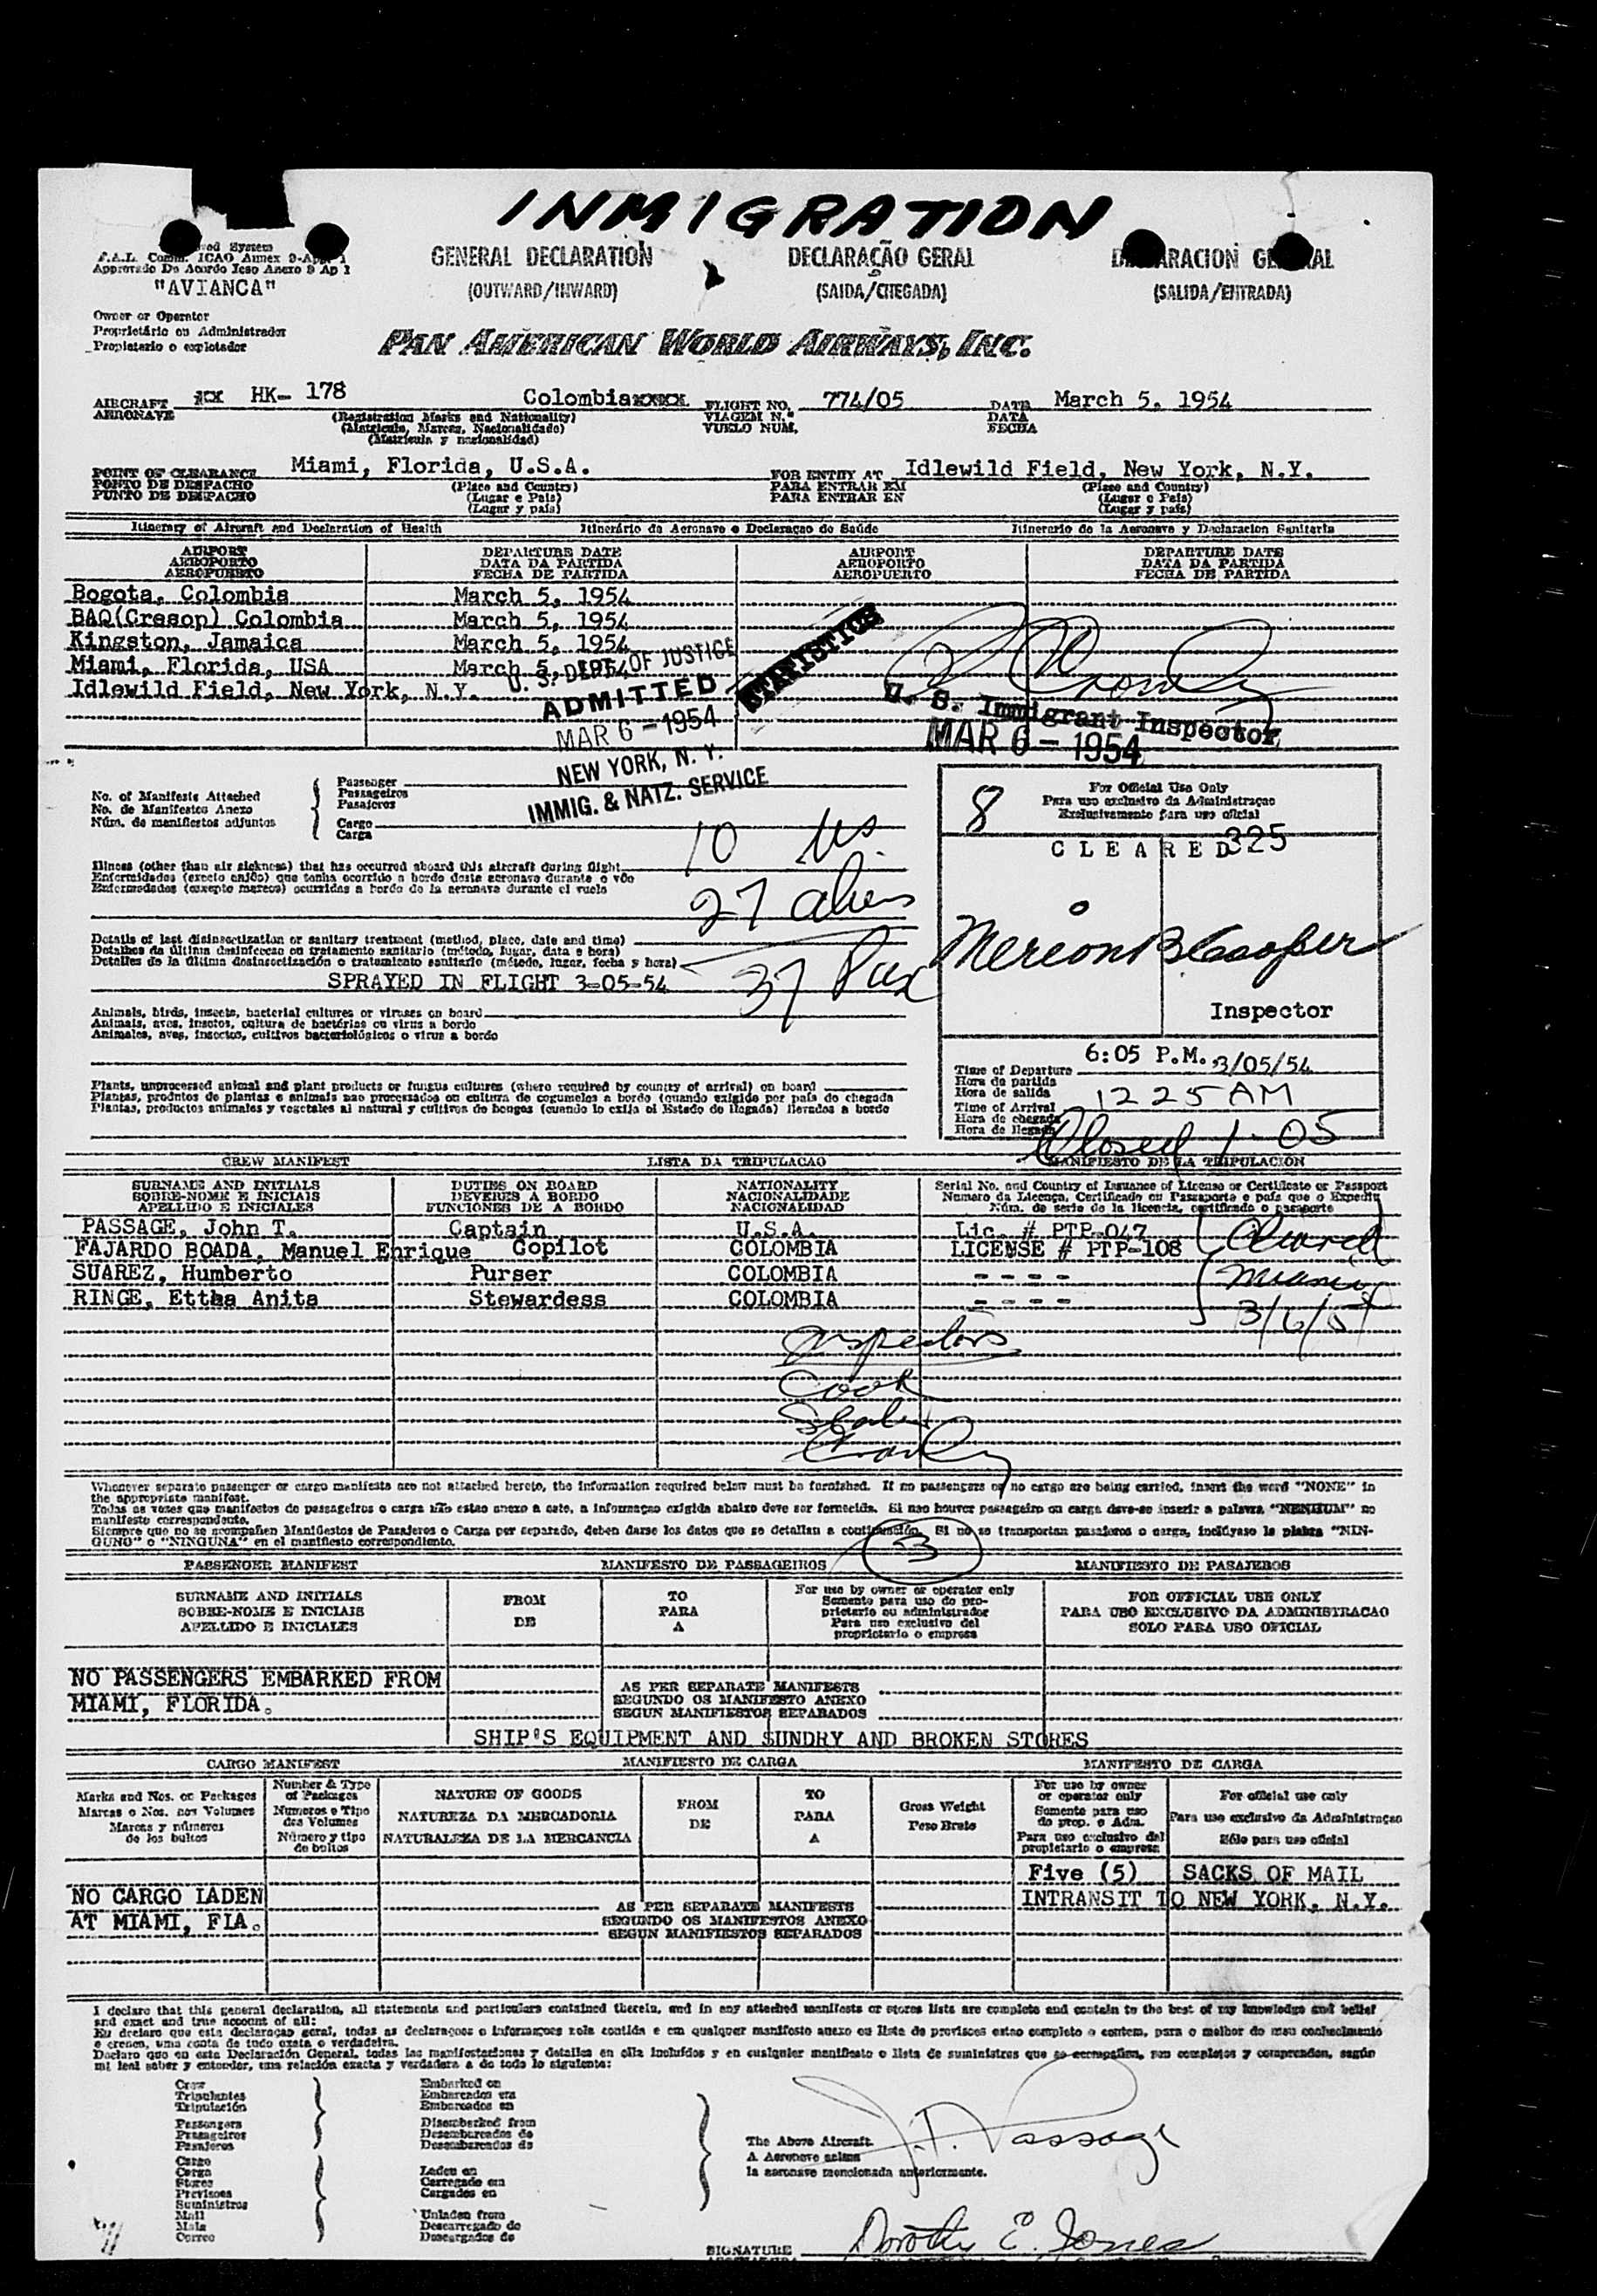 INMIGRATION
F.A.L. Comm. ICAO Annex 9-App 1
Approvado De Acordo Icao Anexo 9 Ap 1
"AVIANCA"
GENERAL DECLARATION
(OUTWARD/INWARD)
DECLARAÇÃO GERAL
(SAIDA/CHEGADA)
(SALIDA/ENTRADA)
Owner or Operator
Proprietário ou Administrador
Propietario o explotador
PAN AMERICAN WORLD AIRWAYS, INC.
AIRCRAFT HK- 178 Colombia FLIGHT NO. 774/05 DATE March 5, 1954
AERONAVE (Registration Marks and Nationality) VIAGEM N.º DATA
(Matricula, Marcas, Nacionalidade) VUELO NUM. FECHA
(Matrícula y nacionalidad)
POINT OF CLEARANCE Miami, Florida, U.S.A. FOR ENTRY AT Idlewild Field, New York, N.Y.
PONTO DE DESPACHO (Place and Country) PARA ENTRAR EM (Place and Country)
PUNTO DE DESPACHO (Lugar e Pais) PARA ENTRAR EN (Lugar e Pais)
(Lugar y país) (Lugar y país)
Itinerary of Aircraft and Declaration of Health Itinerário da Aeronave e Declaraçao de Saúde Itinerario de la Aeronave y Declaracion Sanitaria
AIRPORT DEPARTURE DATE AIRPORT DEPARTURE DATE
AEROPORTO DATA DA PARTIDA AEROPORTO DATA DA PARTIDA
AEROPUERTO FECHA DE PARTIDA AEROPUERTO FECHA DE PARTIDA
Bogota, Colombia March 5, 1954
BAQ(Cresop) Colombia March 5, 1954
Kingston, Jamaica March 5, 1954
Miami, Florida, USA March 5, 1954
Idlewild Field, New York, N.Y.
U. S. DEPT. OF JUSTICE
ADMITTED
MAR 6 - 1954
NEW YORK, N. Y.
IMMIG. & NATZ. SERVICE
STATISTICS
U. S. Immigrant Inspector
MAR 6 - 1954
No. of Manifests Attached
No. de Manifestos Anexo
Núm. de manifiestos adjuntos
Passenger
Passageiros
Pasajeros
Cargo
Carga
10 US
27 alien
37 Pax
Illness (other than air sickness) that has occurred aboard this aircraft during flight
Enfermidades (exceto enjôo) que tenha ocorrido a bordo desta aeronave durante o vôo
Enfermedades (excepto mareos) ocurridas a bordo de la aeronave durante el vuelo
Details of last disinsectization or sanitary treatment (method, place, date and time)
Detalhes da última desinfeccao ou tratamento sanitario (método, lugar, data e hora)
Detalles de la última desinsectización o tratamiento sanitario (método, lugar, fecha y hora)
SPRAYED IN FLIGHT 3-05-54
Animals, birds, insects, bacterial cultures or viruses on board
Animais, aves, insetos, cultura de bactérias ou virus a bordo
Animales, aves, insectos, cultivos bacteriológicos o virus a bordo
Plants, unprocessed animal and plant products or fungus cultures (where required by country of arrival) on board
Plantas, produtos de plantas e animais nao processados ou cultura de cogumelos a bordo (quando exigido por país de chegada
Plantas, productos animales y vegetales al natural y cultivos de hongos (cuando lo exija el Estado de llegada) llevados a bordo
8
For Official Use Only
Para uso exclusivo da Administraçao
Exclusivamente para uso oficial
CLEARED 325
Inspector
Time of Departure 6:05 P.M. 3/05/54
Hora de partida
Hora de salida
Time of Arrival 12 25 AM
Hora de chegada
Hora de llegada
Closed 1-05
CREW MANIFEST LISTA DA TRIPULACAO MANIFIESTO DE LA TRIPULACIÓN
SURNAME AND INITIALS DUTIES ON BOARD NATIONALITY Serial No. and Country of Issuance of License or Certificate or Passport
SOBRE-NOME E INICIAIS DEVERES A BORDO NACIONALIDADE Numero da Licença, Certificado ou Passaporte e país que o Expediu
APELLIDO E INICIALES FUNCIONES DE A BORDO NACIONALIDAD Núm. de serie de la licencia, certificado o pasaporte
PASSAGE, John T. Captain U.S.A. Lic. # PTP-047
FAJARDO BOADA, Manuel Enrique Copilot COLOMBIA LICENSE # PTP-108
SUAREZ, Humberto Purser COLOMBIA - - - -
RINGE, Ettha Anita Stewardess COLOMBIA - - - -
Miami
Inspectors
Cook
Whenever separate passenger or cargo manifests are not attached hereto, the information required below must be furnished. If no passengers or no cargo are being carried, insert the word "NONE" in
the appropriate manifest.
Todas as vezes que manifestos de passageiros o carga não estao anexo a este, a informaçao exigida abaixo deve ser fornecida. Si nao houver passageiro ou carga deve-se inserir a palavra "NENHUM" no
manifesto correspondente.
Siempre que no se acompañen Manifiestos de Pasajeros o Carga por separado, deben darse los datos que se detallan a continuación. Si no se transportan pasajeros o carga, inclúyase la plabra "NIN-
GUNO" o "NINGUNA" en el manifiesto correspondiente.
PASSENGER MANIFEST MANIFESTO DE PASSAGEIROS MANIFIESTO DE PASAJEROS
SURNAME AND INITIALS FROM TO For use by owner or operator only FOR OFFICIAL USE ONLY
SOBRE-NOME E INICIAIS DE PARA Somente para uso do pro- PARA USO EXCLUSIVO DA ADMINISTRACAO
APELLIDO E INICIALES A prietario ou administrador SOLO PARA USO OFICIAL
Para uso exclusivo del
proprietario o empresa
NO PASSENGERS EMBARKED FROM
MIAMI, FLORIDA.
AS PER SEPARATE MANIFESTS
SEGUNDO OS MANIFESTO ANEXO
SEGUN MANIFIESTOS SEPARADOS
SHIP'S EQUIPMENT AND SUNDRY AND BROKEN STORES
CARGO MANIFEST MANIFIESTO DE CARGA MANIFESTO DE CARGA
Marks and Nos. on Packages
Marcas o Nos. nos Volumes
Marcas y números
de los bultos
Number & Type
of Packages
Numeros e Tipo
dos Volumes
Número y tipo
de bultos
NATURE OF GOODS
NATUREZA DA MERCADORIA
NATURALEZA DE LA MERCANCIA
FROM
DE
TO
PARA
A
Gross Weight
Peso Bruto
For use by owner
or operator only
Somente para uso
do prop. o Adm.
Para uso exclusivo del
propietario o empresa
For official use only
Para uso exclusivo da Administraçao
Sólo para uso oficial
Five (5) SACKS OF MAIL
INTRANSIT TO NEW YORK, N.Y.
NO CARGO LADEN
AT MIAMI, FLA.
AS PER SEPARATE MANIFESTS
SEGUNDO OS MANIFESTOS ANEXO
SEGUN MANIFIESTOS SEPARADOS
I declare that this general declaration, all statements and particulars contained therein, and in any attached manifests or stores lists are complete and contain to the best of my knowledge and belief
and exact and true account of all:
Eu declaro que esta declaraçao geral, todas as declaraçoes e informaçoes nela contida e em qualquer manifesto anexo ou lista de provisoes estao completo e contem, para o melhor do meu conhecimento
e crenca, uma conta de tudo exata e verdadeira.
Declaro que en esta Declaración General, todas las manifestaciones y detalles en ella incluídos y en cualquier manifiesto o lista de suministros que se acompañan, son completos y comprenden, según
mi leal saber y entender, una relación exacta y verdadera a de todo lo siguiente:
Crew
Tripulantes
Tripulación
Passengers
Passageiros
Pasajeros
Cargo
Carga
Stores
Previsoes
Suministros
Mail
Mala
Correo
Embarked on
Embarcados em
Embarcados en
Disembarked from
Desembarcados de
Desembarcados de
Laden on
Carregado em
Cargados en
Unladen from
Descarregado de
Descargados de
The Above Aircraft.
A Aeronave acima
la aeronave mencionada anteriormente.
J.T. Passage
SIGNATURE Dorothy E. Jones